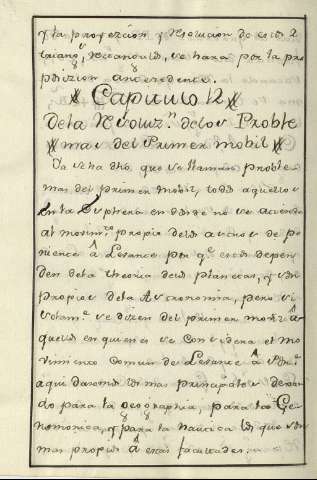 y la proyección y resolucion de estos 2
triangs. rectangulos, se hara por la pro
posizion antecedente.
Capitulo 12
De la Resoluzn. de los Proble
mas del Primer mobil
Ya se ha dho, que se llaman proble
mas del primer mobil, todos aquellos
en la Esphera en donde no se atiende
al movimto. proprio de los astros de po
niente â Levante por qe. estos depen
den de la theoria de los planetas, y son
propios de la Astronomia, pero si
solamte. se dizen del primer mobil â
quellos en quienes se considera el mo
vimiento comun de Levante â Ponte.
aqui daremos los mas principales dexan
do para la Geographia, para la Ge
nomonica, y para la nautica los que son
mas propios â estas facultades.